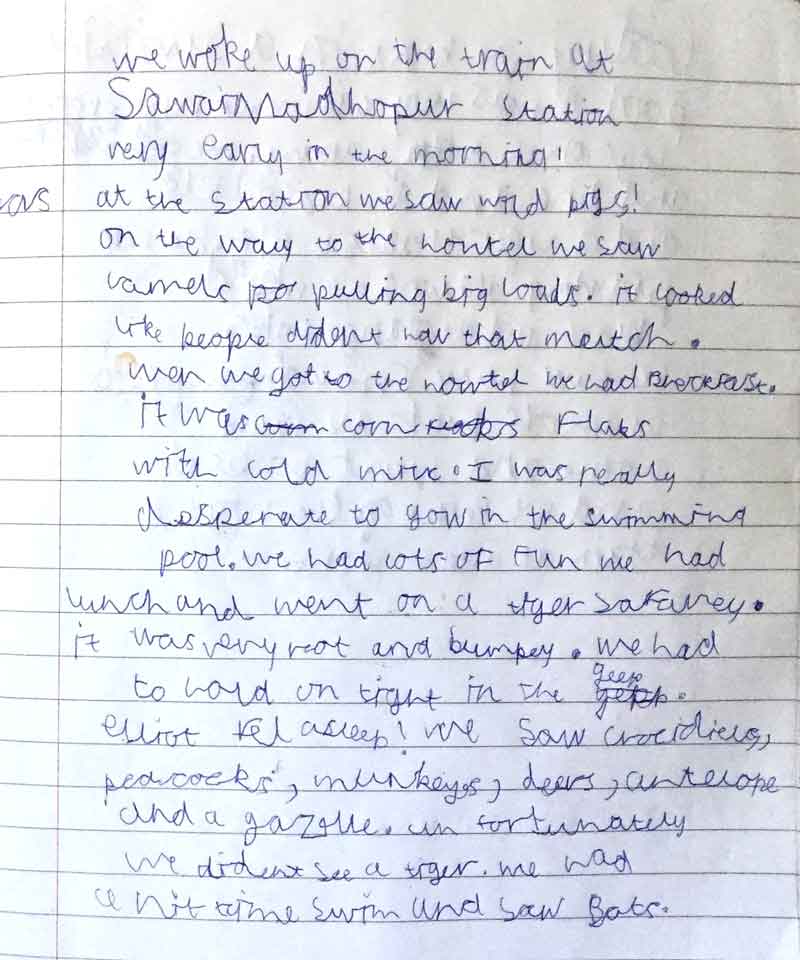 we woke up on the train at
SawaiMadhopur station
very early in the morning!
at the station we saw wild pigs!
on the way to the hontel we saw
camels po pulling big loads. it looked
like people dident hav that mutch.
wen we got to the howtel we had Brekfast.
it was corn corn Flaks
with cold milk. I was really
desperate to gow in the swimming
pool. we had lots of fun we had
lunch and went on a tiger safarey.
it was very hot and bumpey. we had
to hold on tight in the geep.
elliot fel asleep! we saw crocidiels,
peacocks, munkeys, deers, antelope
and a gazelle. unfortunately
we dident see a tiger. we had
a nit time swim and saw Bats.